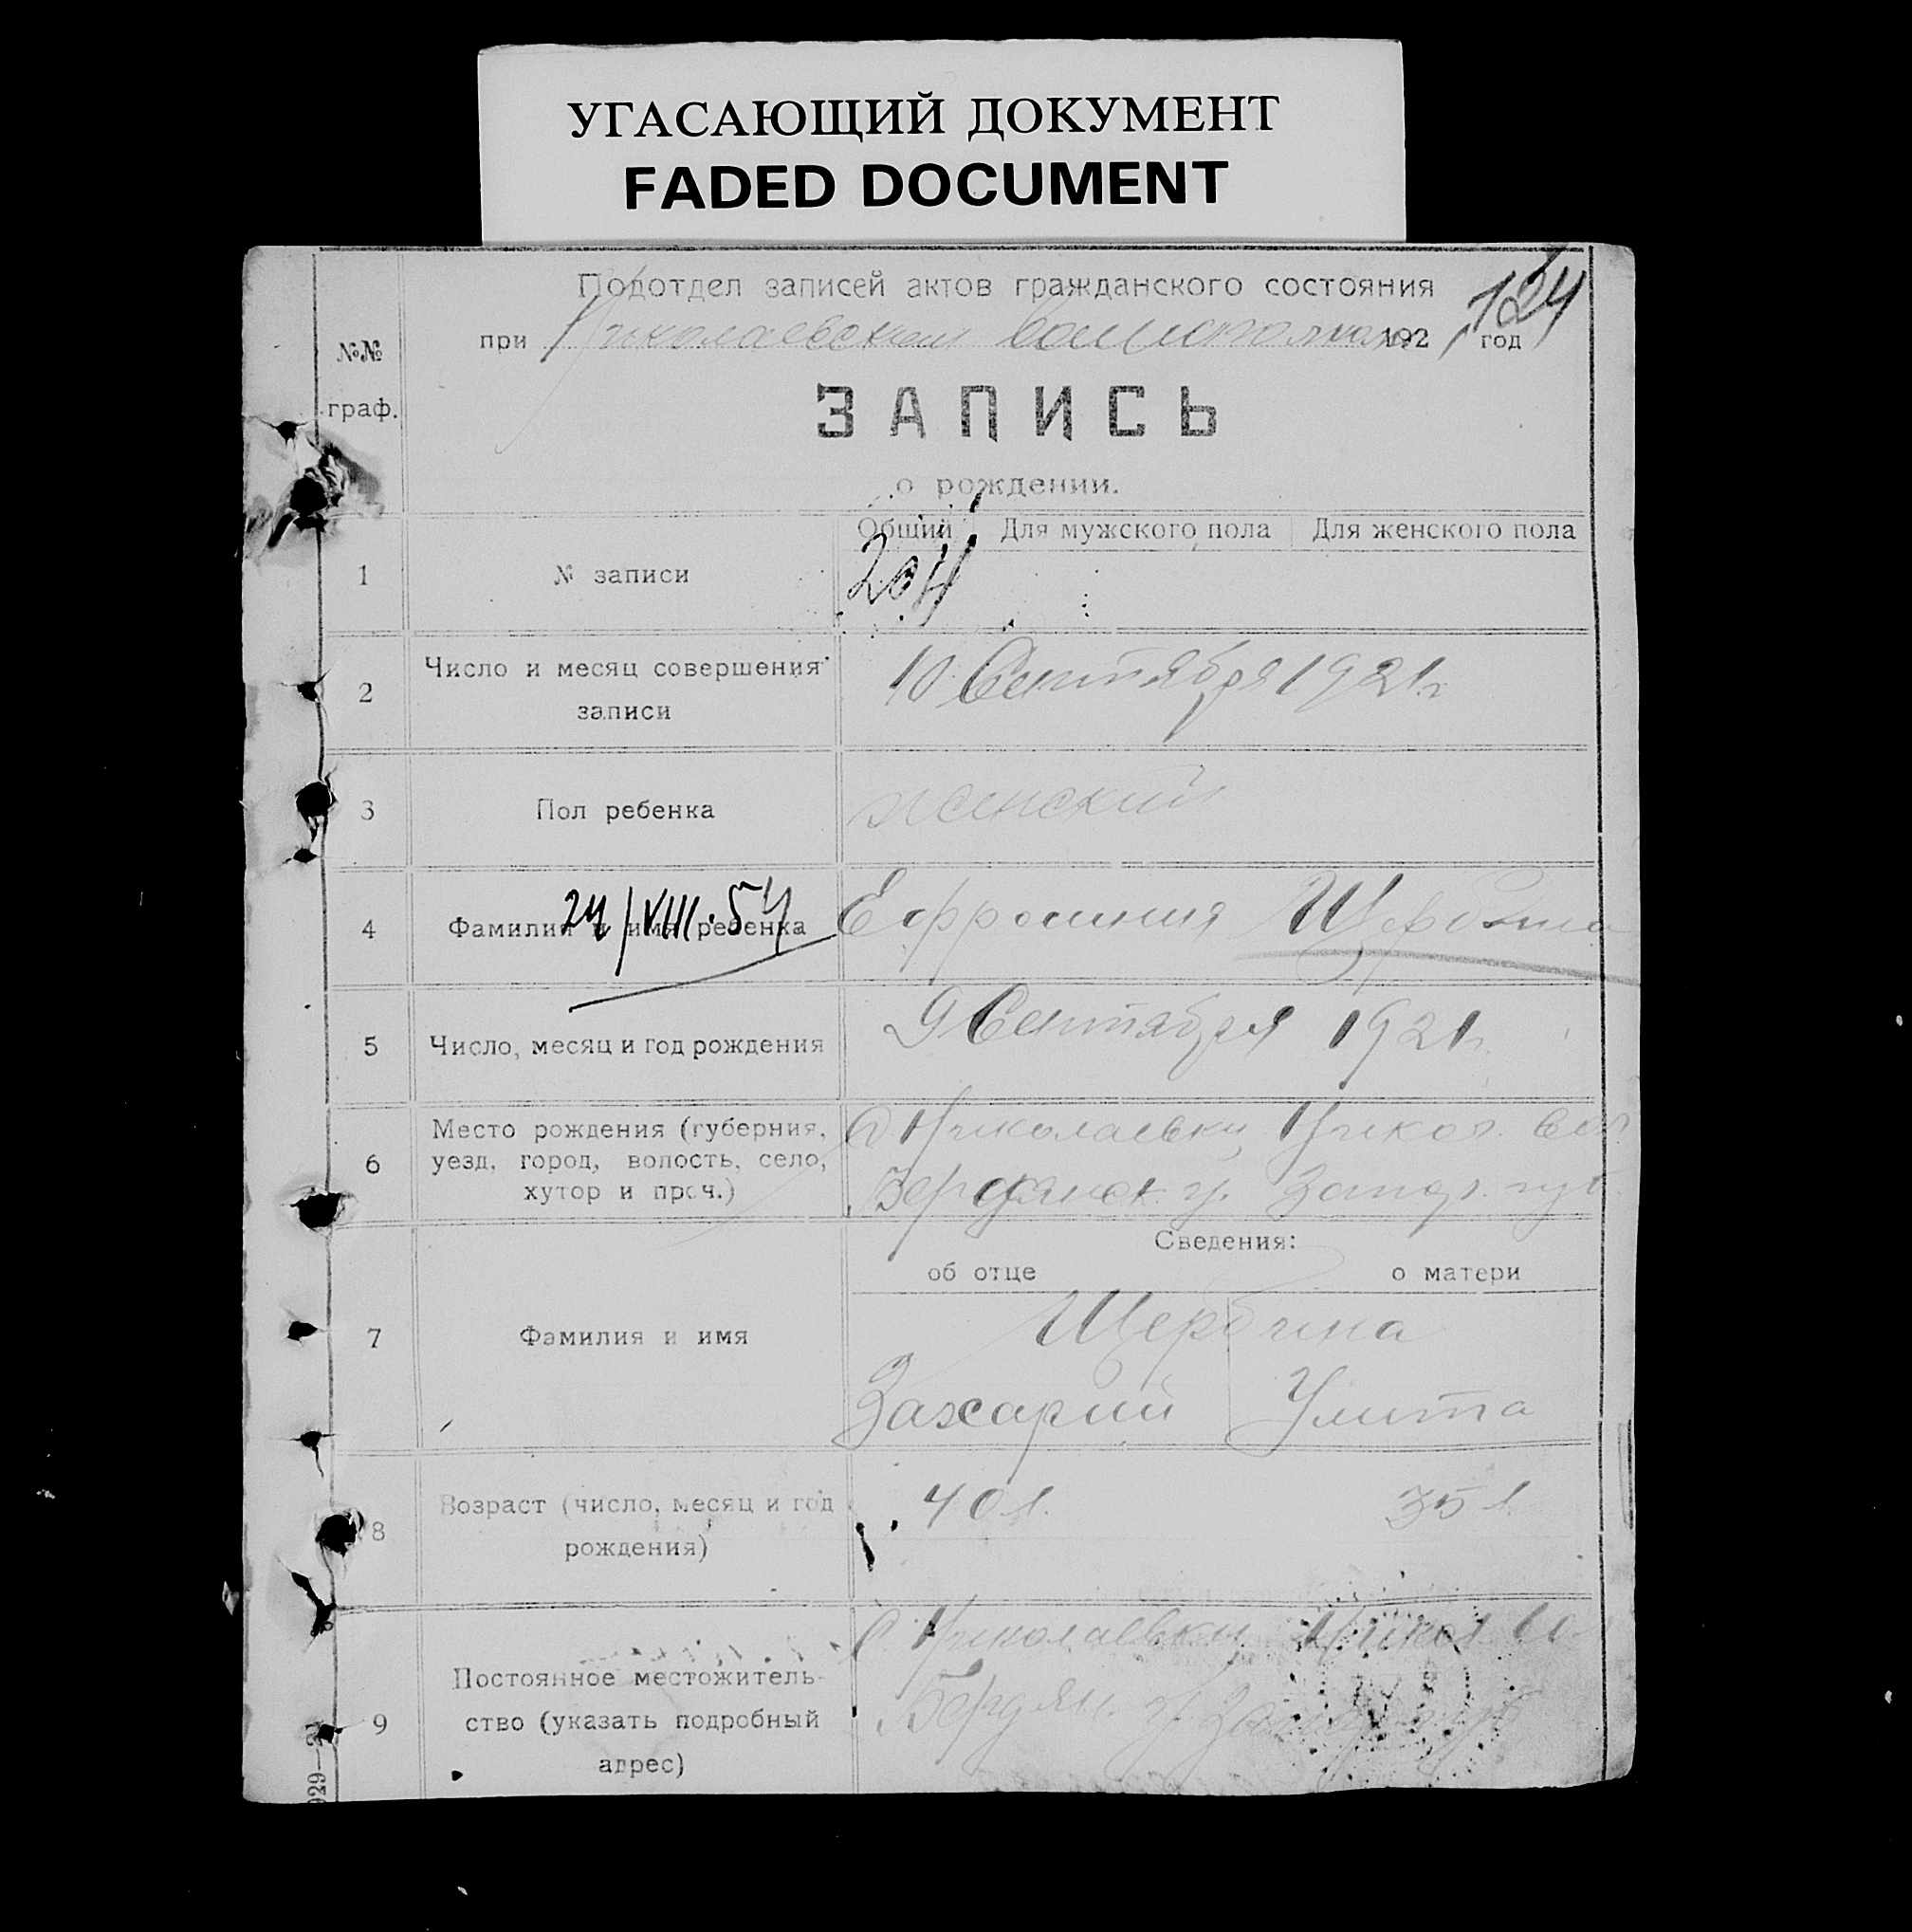 УГАСАЮЩИЙ ДОКУМЕНТ
FADED DOCUMENT
124
Подотдел записей актов гражданского состояния
при Николаевском 1921 год
№№ граф.
ЗАПИСЬ
о рождении.
Общий Для мужского пола Для женского пола
1 № записи 204
2 Число и месяц совершения записи 10 Сентября 1921 г
3 Пол ребенка женский
4 Фамилия и имя ребенка Ефросиния Щербина
24/VIII.54
5 Число, месяц и год рождения 9 Сентября 1921 г.
6 Место рождения (губерния, уезд, город, волость, село, хутор и проч.) С Николаевки, Никол. вол
Бердянск. у. Запор. губ.
Сведения:
об отце о матери
7 Фамилия и имя Щербина
Захарий Улита
8 Возраст (число, месяц и год рождения) 40 л. 35 л
9 Постоянное местожитель-
ство (указать подробный
адрес)
С. Николаевки Никол
Бердян. у.
929—2